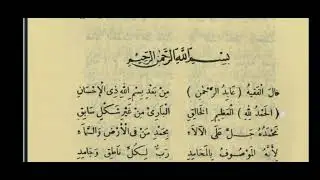 بِسْمِ اللهِ الرَّحْمٰنِ الرَّحِيْمِ
قَالَ الْفَقِيْهُ ( عَابِدُ الرَّحْمٰنِ ) مِنْ بَعْدِ بِسْمِ اللهِ ذِي الْاِحْسَانِ
( اَلْحَمْدُ لِلّٰهِ ) الْعَظِيْمِ الْخَالِقِ الْبَارِئِ مِنْ غَيْرِ شَكْلٍ سَابِقِ
نَحْمَدُهُ جَلَّ عَلَى الْآلَاءِ بِحَمْدِ مَنْ فِى الْاَرْضِ وَالسَّمَاءِ
لِاَنَّهُ الْمَوْصُوْفُ بِالْمَحَامِدِ رَبٌّ لِكُلِّ نَاطِقٍ وَجَامِدِ